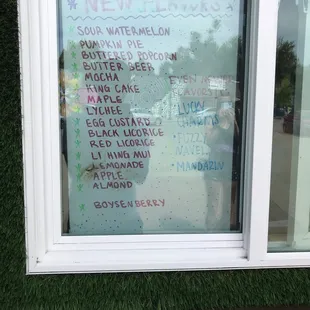 NEW FLAVORS
SOUR WATERMELON
PUMPKIN PIE
BUTTERED POPCORN
BUTTER BEER
MOCHA
KING CAKE
MAPLE
LYCHEE
EGG CUSTARD
BLACK LICORICE
RED LICORICE
LI HING MUI
LEMONADE
APPLE
ALMOND
BOYSENBERRY
EVEN
FLAVORS
FUZZY
NAVEL
MANDARIN